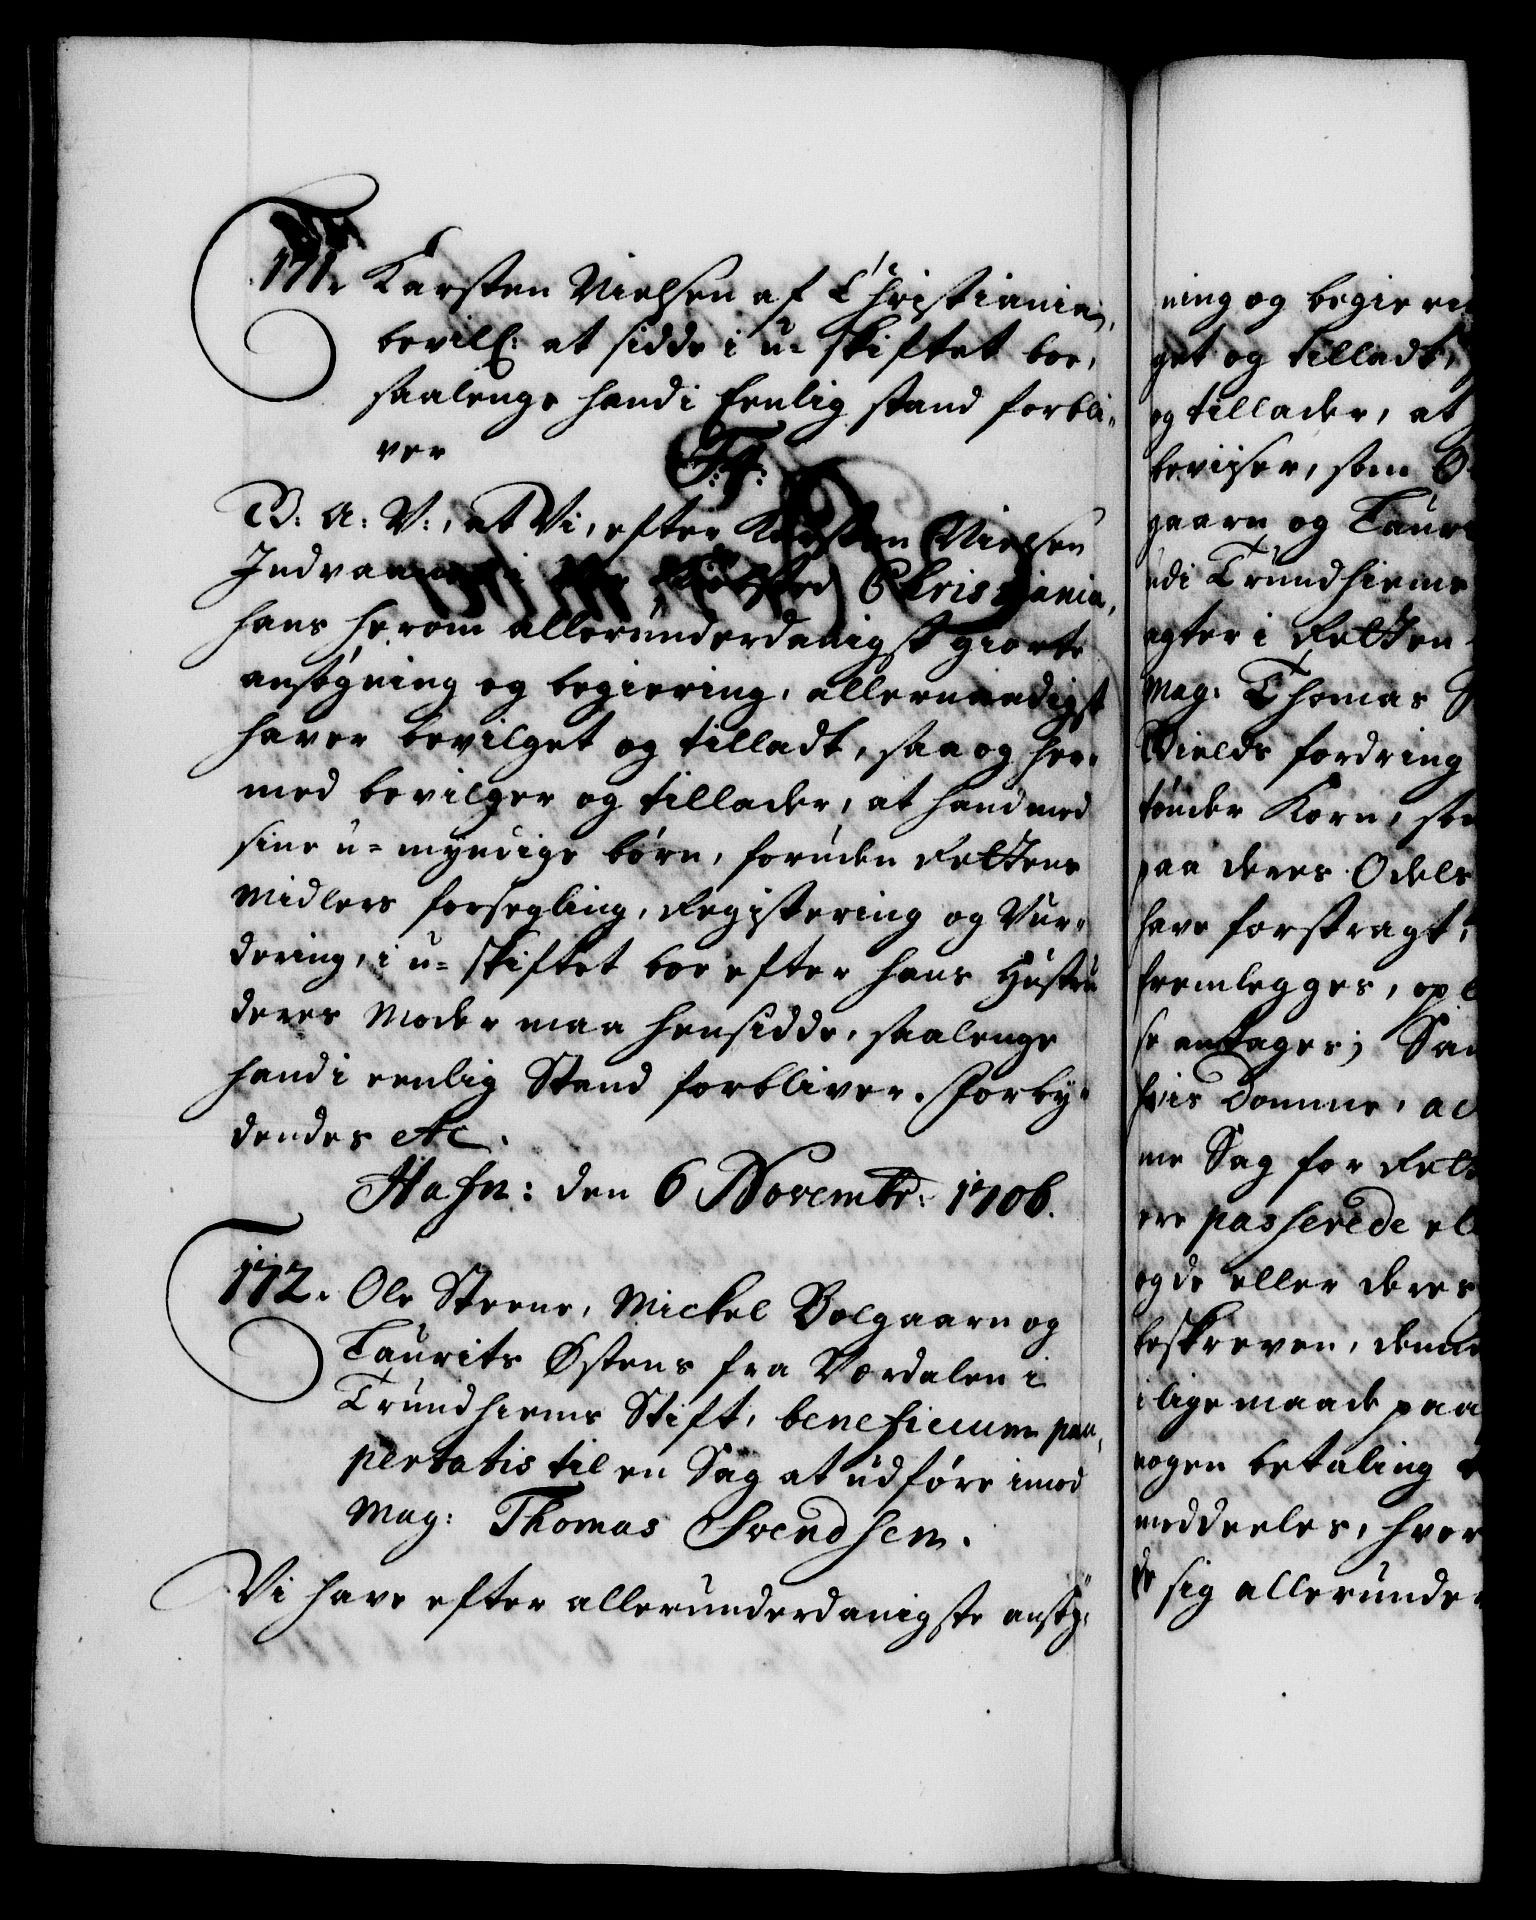 171. Karsten Nielsen af Christiania,
bevill: at sidde i u- skiftet boe,
saalenge hand i Eenlig stand forbli-
ver
F. 4.
B: A: V:, at Vi, efter Karsten Nielsen
Indvaaner i Christiania,
hans herom allerunderdanigst giorte
ansøgning og begiering, allernaadigst
haver bevilget og tilladt, saa og her-
med bevilger og tillader, at hand med
sine u=myndige børn, foruden Rettens
Midlers forsegling, Registering og Vur-
dering, i u=skiftet boe efter hans Hustru
deres Moder maa hensidde, saalenge
hand i eenlig Stand forbliver. Forby-
dendes etc.
Hafn: den 6 Novembr: 1706.
172. Ole Steene, Mickel Bolgaarn og
Laurits Østens fra Værdalen i
Trundhiems Stift, beneficium pau-
pertatis til en Sag at udføre imod
Mag: Thomas Svendsen.
Vi have efter allerunderdanigste ansøg-
ning og begierin
get og tilladt,
og tillader, at
beviser, som O
gaarn og Laur
udi Trundhiems
agter i Retten
Mag: Thomas
fordring
tønder Korn, som
paa deres Odels
have forstragt,
fremlegges, op
se antages; Sam
hvis Domme, ac
me Sag for Rett
ere passerede el
og de eller deres
beskreven, denne
i lige maade paa
nogen betaling
meddeeles, hvor
de sig allerunder